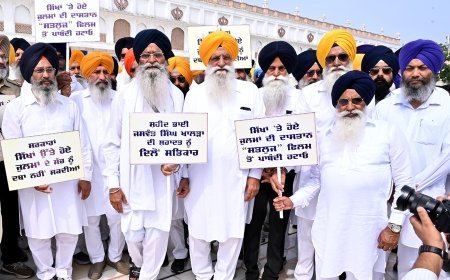 ਸਿੱਖਾਂ 'ਤੇ ਹੋਏ
ਜ਼ੁਲਮਾਂ ਦੀ ਦਾਸਤਾਨ
"ਸਤਲੁਜ" ਫ਼ਿਲਮ
ਤੋਂ ਪਾਬੰਦੀ ਹਟਾਓ
ਸਰਕਾਰਾਂ
ਸਿੱਖਾਂ ਉੱਤੇ ਹੋਏ
ਜ਼ੁਲਮਾਂ ਦੇ ਸੱਚ ਨੂੰ
ਦਬਾ ਨਹੀਂ ਸਕਦੀਆਂ
ਸ਼ਹੀਦ ਭਾਈ
ਜਸਵੰਤ ਸਿੰਘ ਖਾਲੜਾ
ਦੀ ਸ਼ਹਾਦਤ ਨੂੰ
ਦਿਲੋਂ ਸਤਿਕਾਰ
ਸਿੱਖਾਂ 'ਤੇ ਹੋਏ
ਜ਼ੁਲਮਾਂ ਦੀ ਦਾਸਤਾਨ
"ਸਤਲੁਜ" ਫ਼ਿਲਮ
ਤੋਂ ਪਾਬੰਦੀ ਹਟਾਓ